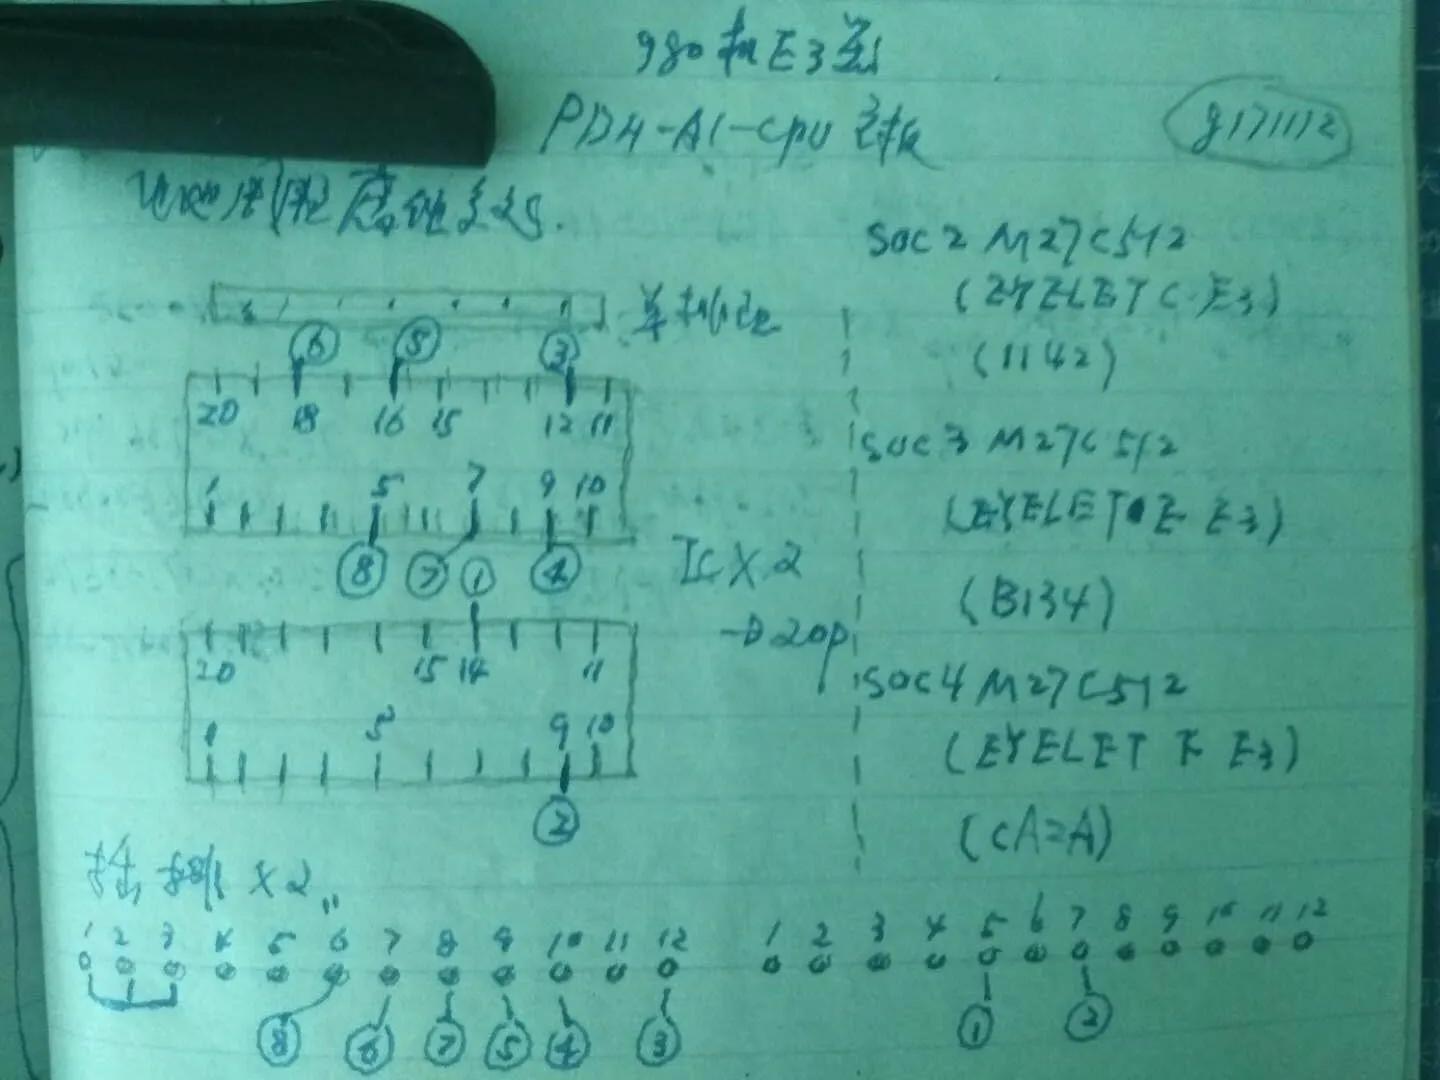 980机E3型
PD4-A1-CPU主板
g171112
SOC2 M27C512
(EYELET C E3)
(1142)
⑥ ⑤ ③
20 18 16 15 12 11
1 5 7 9 10
⑧ ⑦ ① ④
IC X 2
20P
SOC3 M27C512
(EYELET E E3)
(B134)
20 15 14 11
1 5 9 10
②
SOC4 M27C512
(EYELET F E3)
(CA=A)
X 2
1 2 3 4 5 6 7 8 9 10 11 12
⑧ ⑥ ⑦ ⑤ ④ ③
1 2 3 4 5 6 7 8 9 10 11 12
① ②